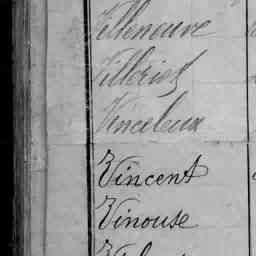 Villeneuve
Villeriet
Vinceleux
Vincent
Vinouse